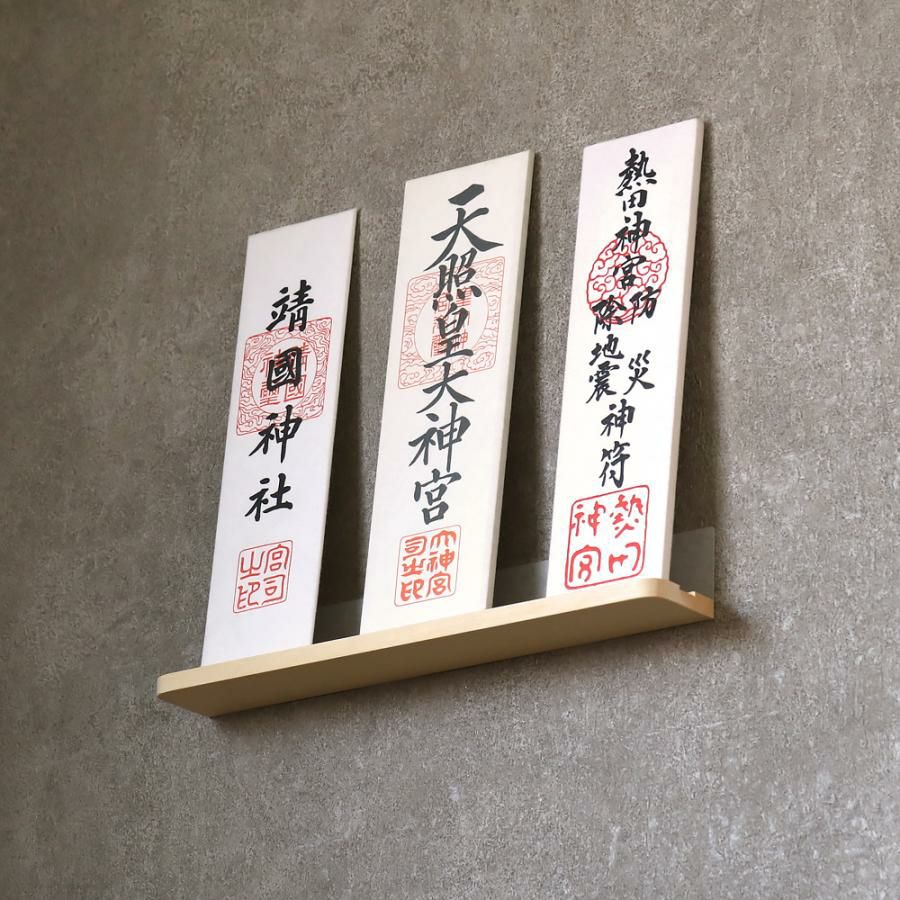 靖國神社
宮司
之印
天照皇大神宮
大神宮
司之印
熱田神宮
防災
除地震
神符
熱田
神宮